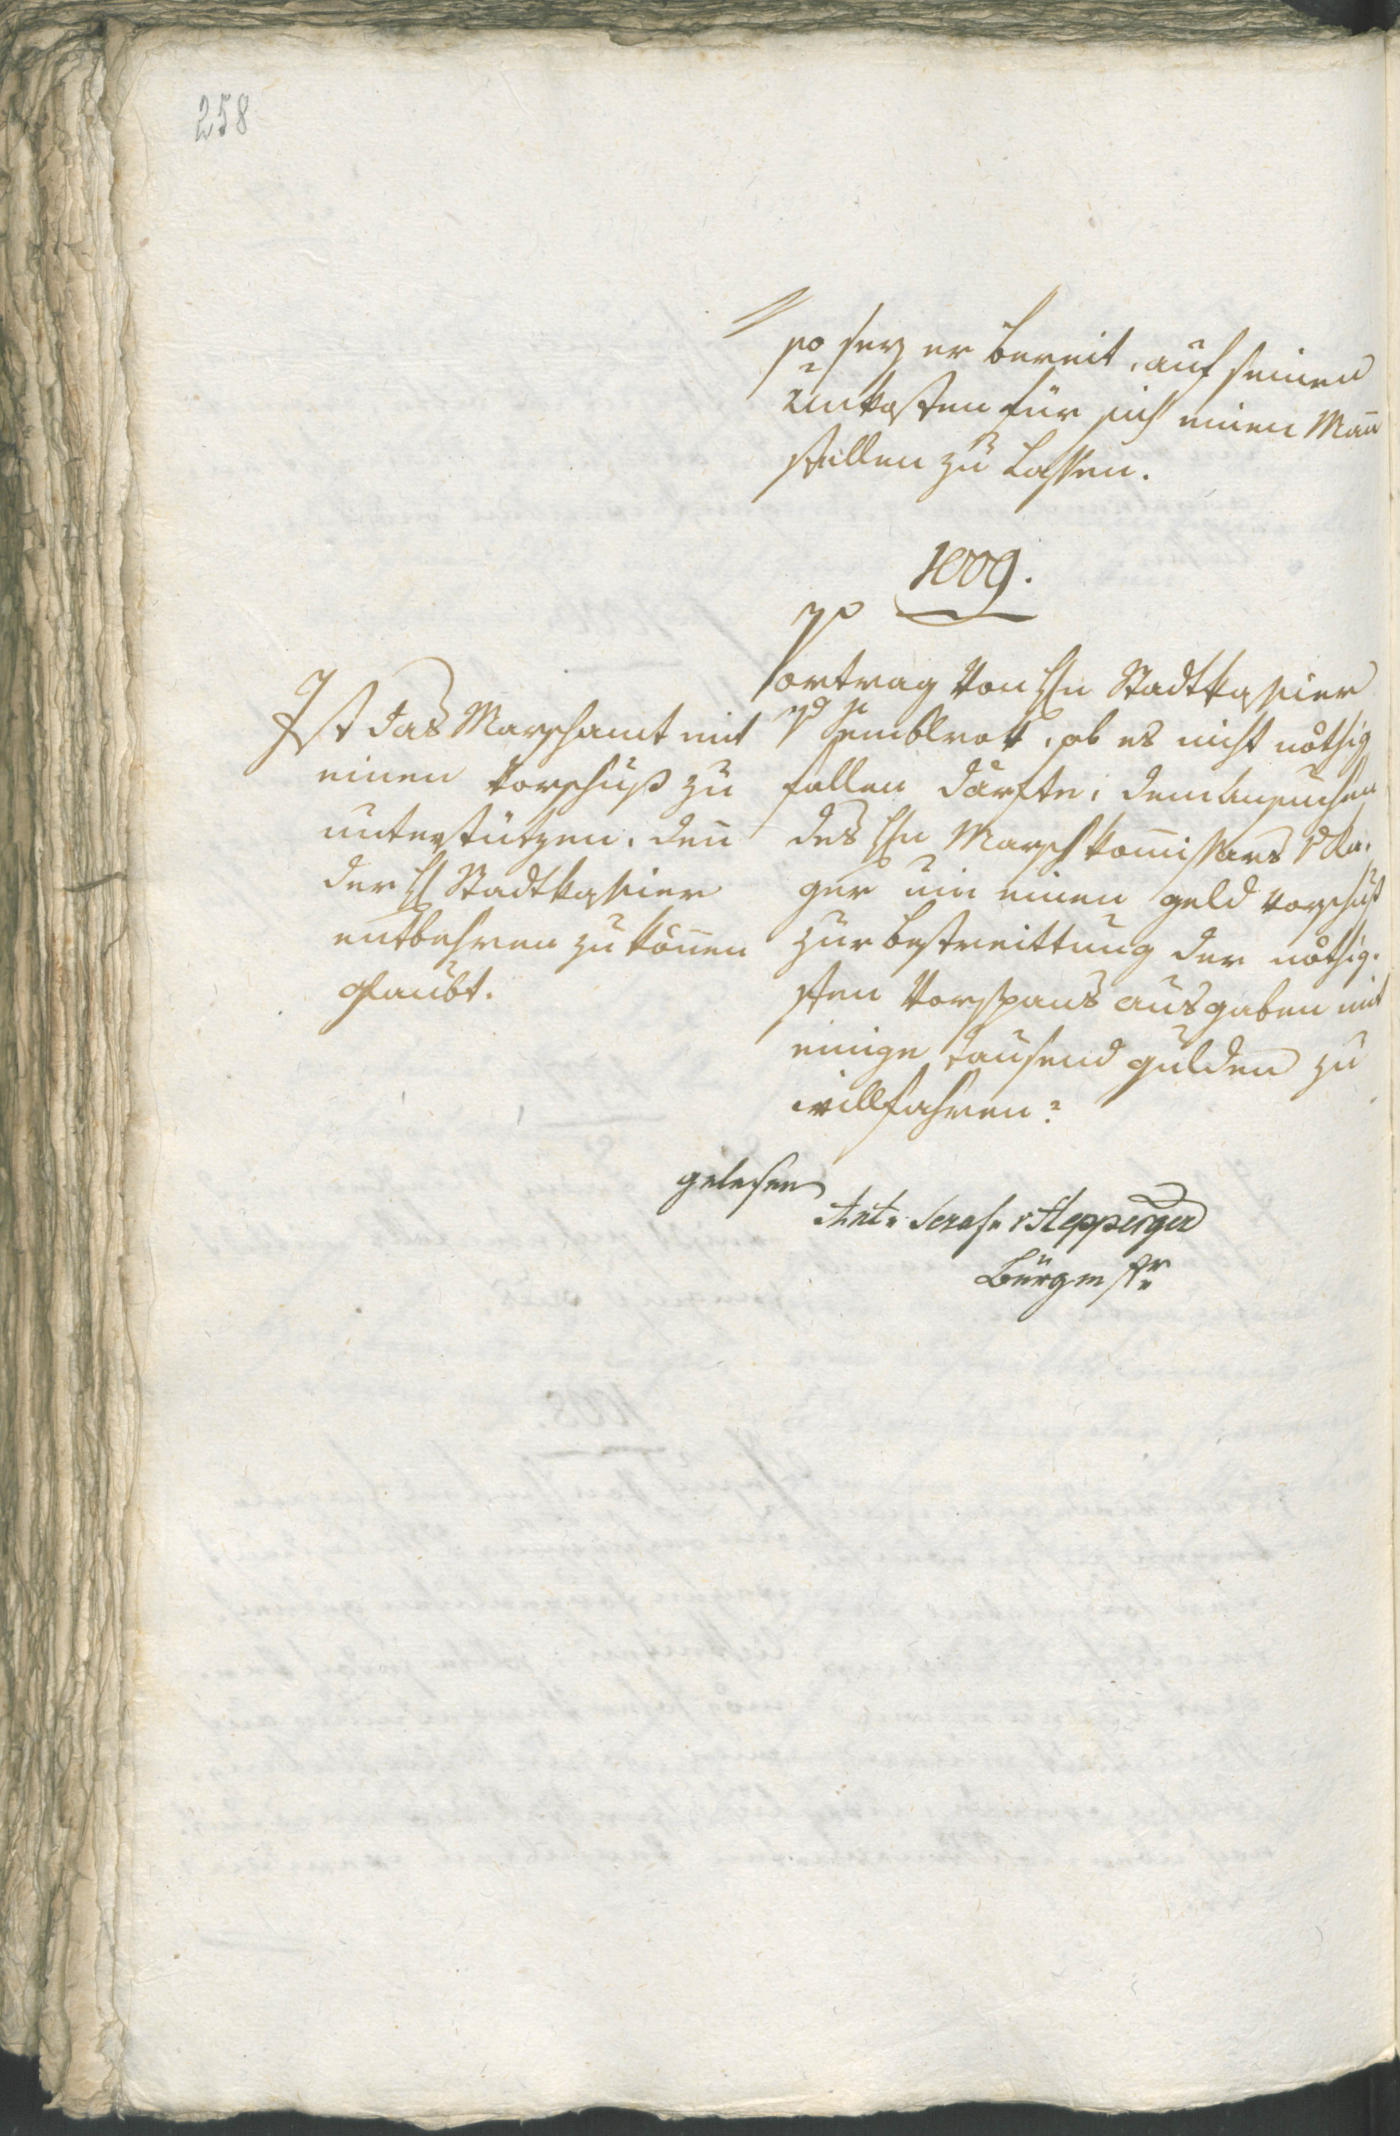 258
so sey er bereit, auf seinen
Unkosten für sich einen Man̄
stellen zu Lassen.
1009.
Vortrag Von Hn Stadtkassier
ob es nicht nöthig
fallen därfte, dem Ansuchen
des Hn Marschkom̄issars
ger um einen geld vorschuß
zur bestreittung der nöthig-
sten Vorspans ausgaben mit
einige tausend gulden zu
willfahren?
Ist das Marschamt mit
einen Vorschuß zu
unterstützen, den̄
der H Stadtkassier
entbehren zu kön̄en
glaubt.
gelesen
Ant. Seraf. v Hepperger
Bürgmstr